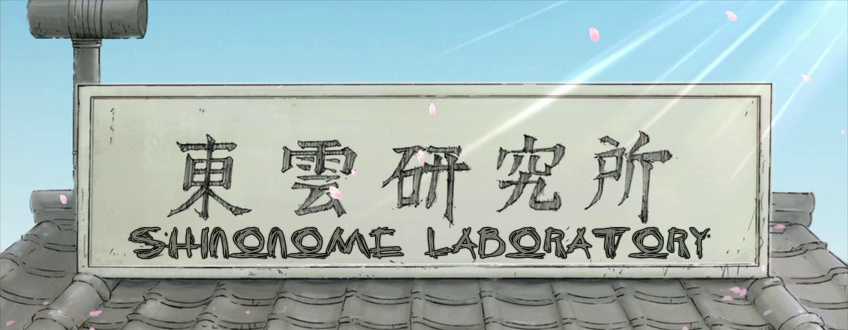 東雲研究所
SHINONOME LABORATORY